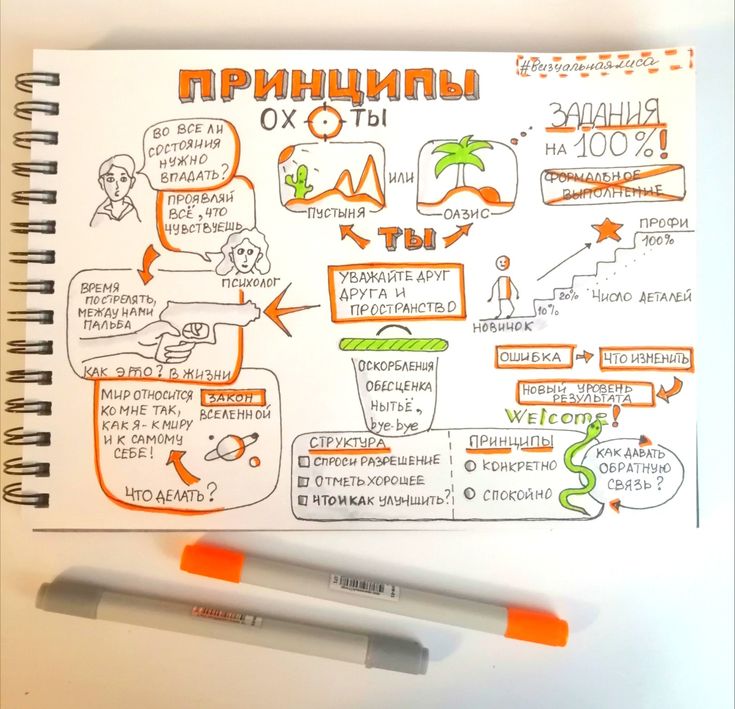 #визуальнаялиса
ПРИНЦИПЫ
ОХ ТЫ
ВО ВСЕ ЛИ
СОСТОЯНИЯ
НУЖНО
ВПАДАТЬ?
ПРОЯВЛЯЙ
ВСЁ, ЧТО
ЧУВСТВУЕШЬ
ПСИХОЛОГ
ПУСТЫНЯ
ИЛИ
ОАЗИС
ТЫ
ЗАДАНИЯ
НА 100%!
ФОРМАЛЬНОЕ
ВЫПОЛНЕНИЕ
ПРОФИ
100%
20%
10%
ЧИСЛО ДЕТАЛЕЙ
НОВИЧОК
ВРЕМЯ
ПОСТРЕЛЯТЬ,
МЕЖДУ НАМИ
ПАЛЬБА
КАК ЭТО? В ЖИЗНИ
УВАЖАЙТЕ ДРУГ
ДРУГА И
ПРОСТРАНСТВО
ОСКОРБЛЕНИЯ
ОБЕСЦЕНКА
НЫТЬЁ
bye-bye
ОШИБКА
ЧТО ИЗМЕНИТЬ
НОВЫЙ УРОВЕНЬ
РЕЗУЛЬТАТА
МИР ОТНОСИТСЯ
КО МНЕ ТАК,
КАК Я - К МИРУ
И К САМОМУ
СЕБЕ!
ЗАКОН
ВСЕЛЕННОЙ
ЧТО ДЕЛАТЬ?
Welcome!
СТРУКТУРА
СПРОСИ РАЗРЕШЕНИЕ
ОТМЕТЬ ХОРОШЕЕ
ЧТО И КАК УЛУЧШИТЬ?
ПРИНЦИПЫ
КОНКРЕТНО
СПОКОЙНО
КАК ДАВАТЬ
ОБРАТНУЮ
СВЯЗЬ?